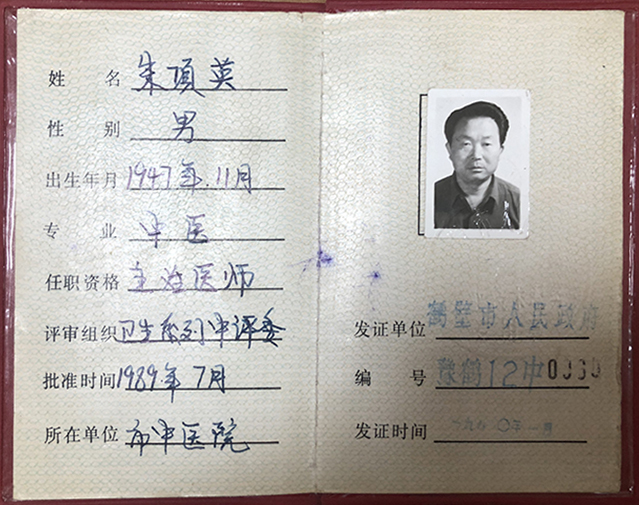 姓名 朱顶英
性别 男
出生年月 1947年.11月
专业 中医
任职资格 主治医师
评审组织 卫生系列中评委
批准时间 1989年7月
所在单位 市中医院
发证单位 鹤壁市人民政府
编号 豫鹤12中0330
发证时间 一九九〇年一月